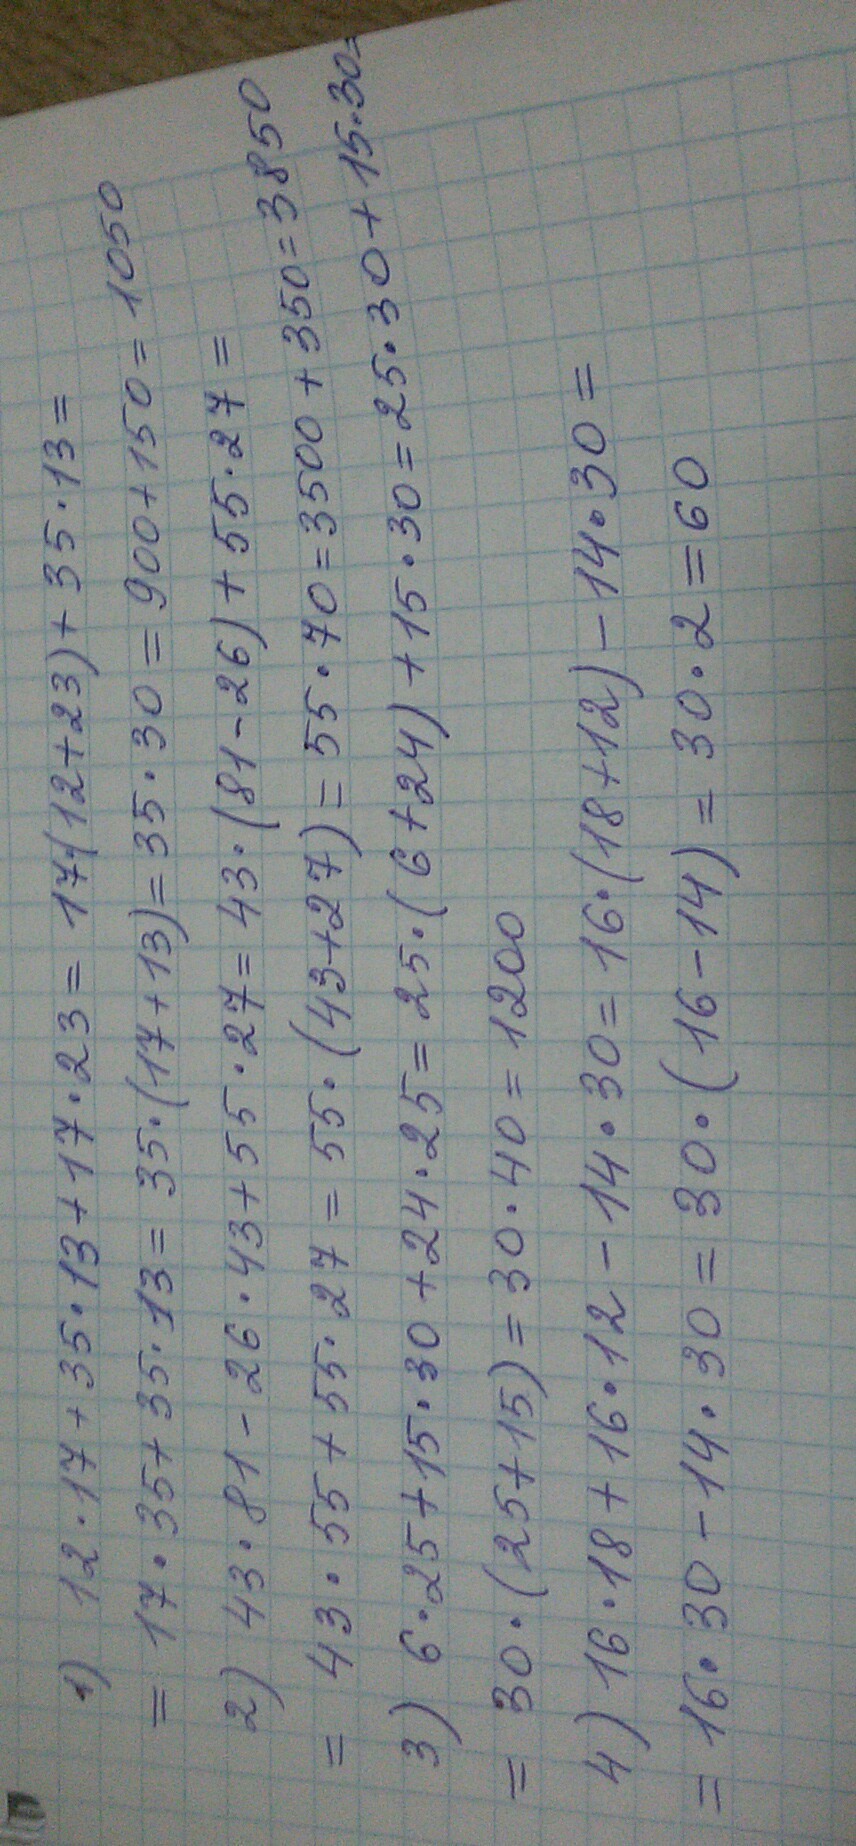 1) 12·17+35·13+17·23=17·(12+23)+35·13=
=17·35+35·13=35·(17+13)=35·30=900+150=1050
2) 43·81-26·43+55·27=43·(81-26)+55·27=
=43·55+55·27=55·(43+27)=55·70=3500+350=3850
3) 6·25+15·30+24·25=25·(6+24)+15·30=25·30+15·30=
=30·(25+15)=30·40=1200
4) 16·18+16·12-14·30=16·(18+12)-14·30=
=16·30-14·30=30·(16-14)=30·2=60